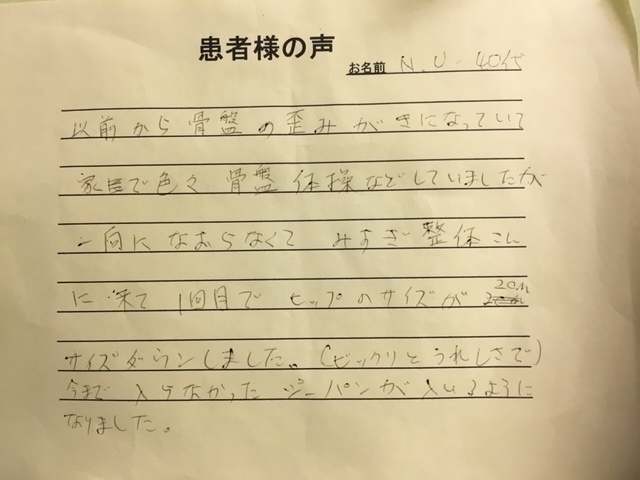 患者様の声
お名前 N.U. 40代
以前から骨盤の歪みがきになっていて
家で色々骨盤体操などしていましたが
一向になおらなくて みすぎ整体さん
に来て1回目で ヒップのサイズが 2cm
サイズダウンしました。(ビックリとうれしさで)
今まで入らなかった ジーパンが入るように
なりました。